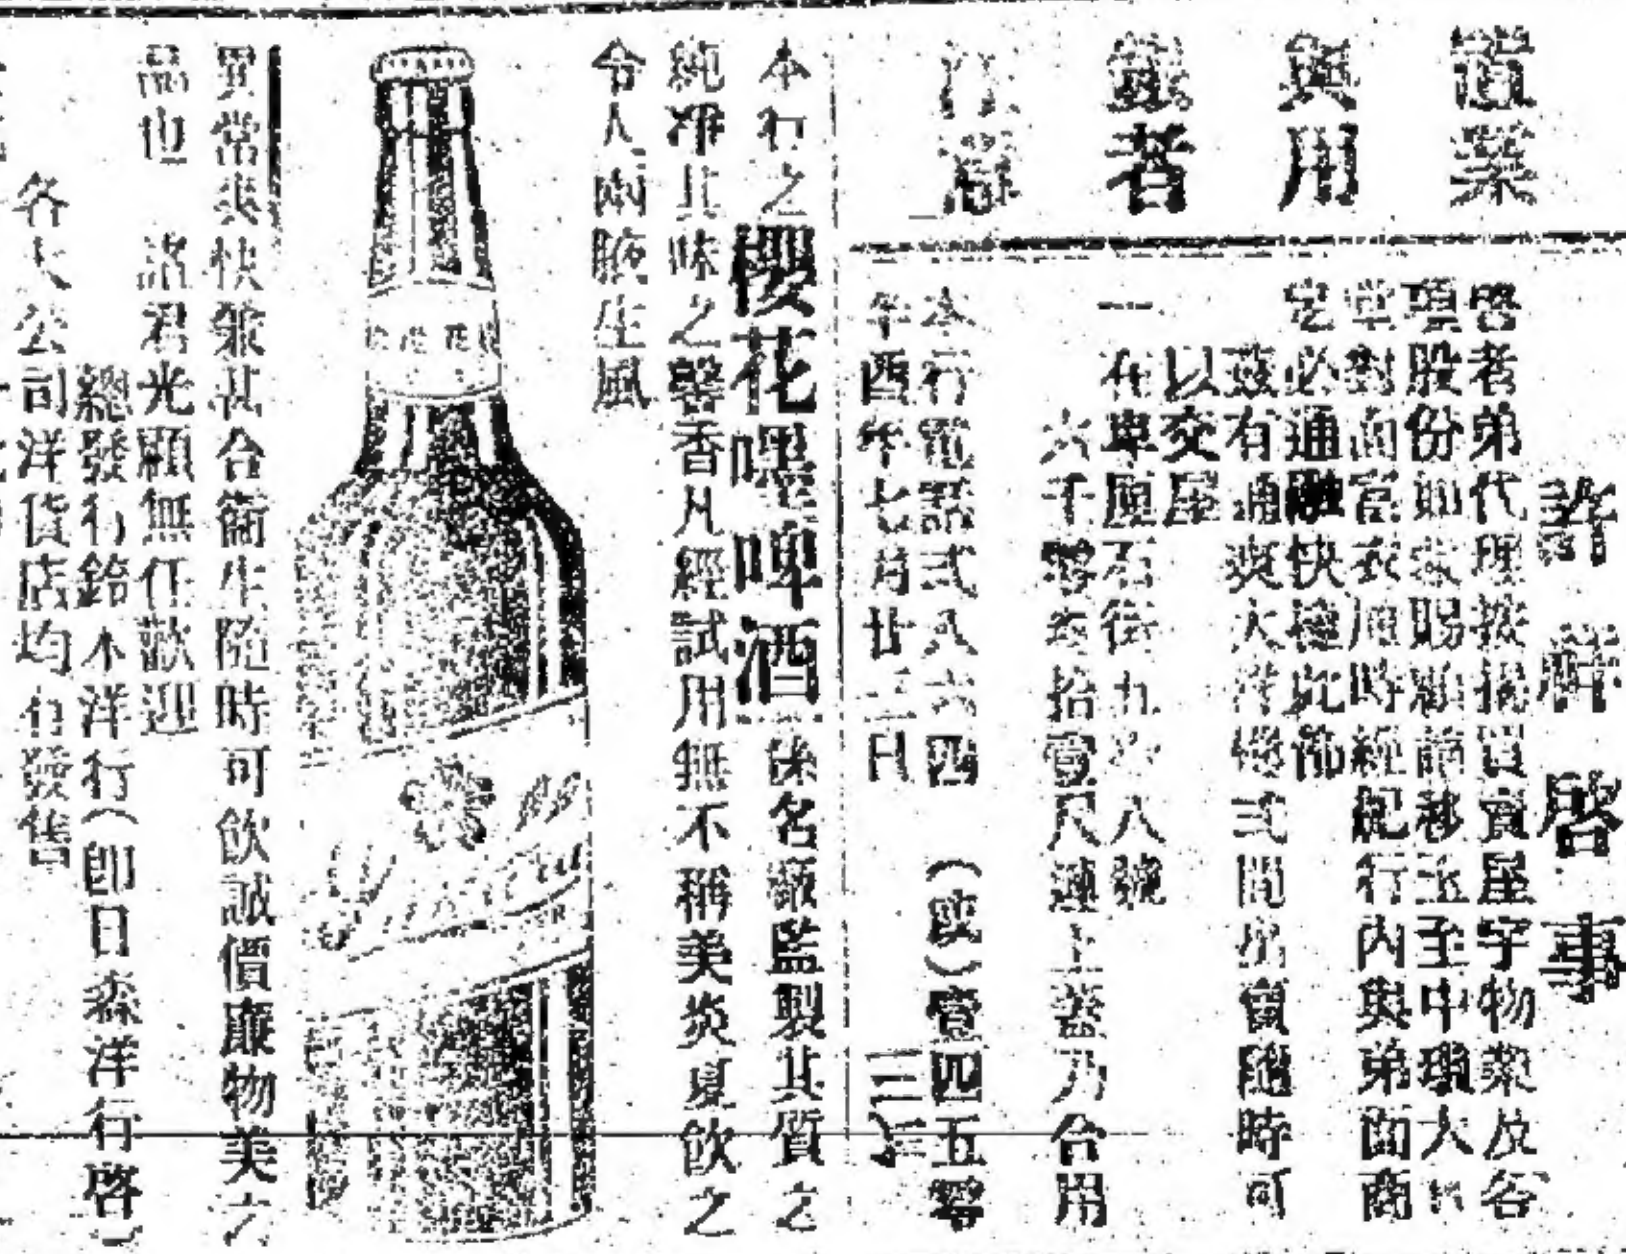 業
與用
者
許 祥 啓 事
啓者弟代理按揭買賣屋宇物業及各
項股份如蒙賜顧請移玉至中環大
堂對面當衣 時經紀行內與弟面商
定必通融快捷此佈
茲有通爽大洋樓弍間出賣隨時可
以交屋
一在卑厘石街九 八號
六千零 拾壹尺連上蓋乃合用
本行電話弍八六四 (或)壹四五零
辛酉年七月廿三日
本行之櫻花嘿啤酒係名廠監製其質之
純凈其味之馨香凡經試用無不稱美炎夏飲之
令人兩腋生風
異常爽快兼其合衞生隨時可飲誠價廉物美之
品也 諸君光顧無任歡迎
總發行鈴木洋行(即日森洋行啓)
各大公司洋貨店均有發售